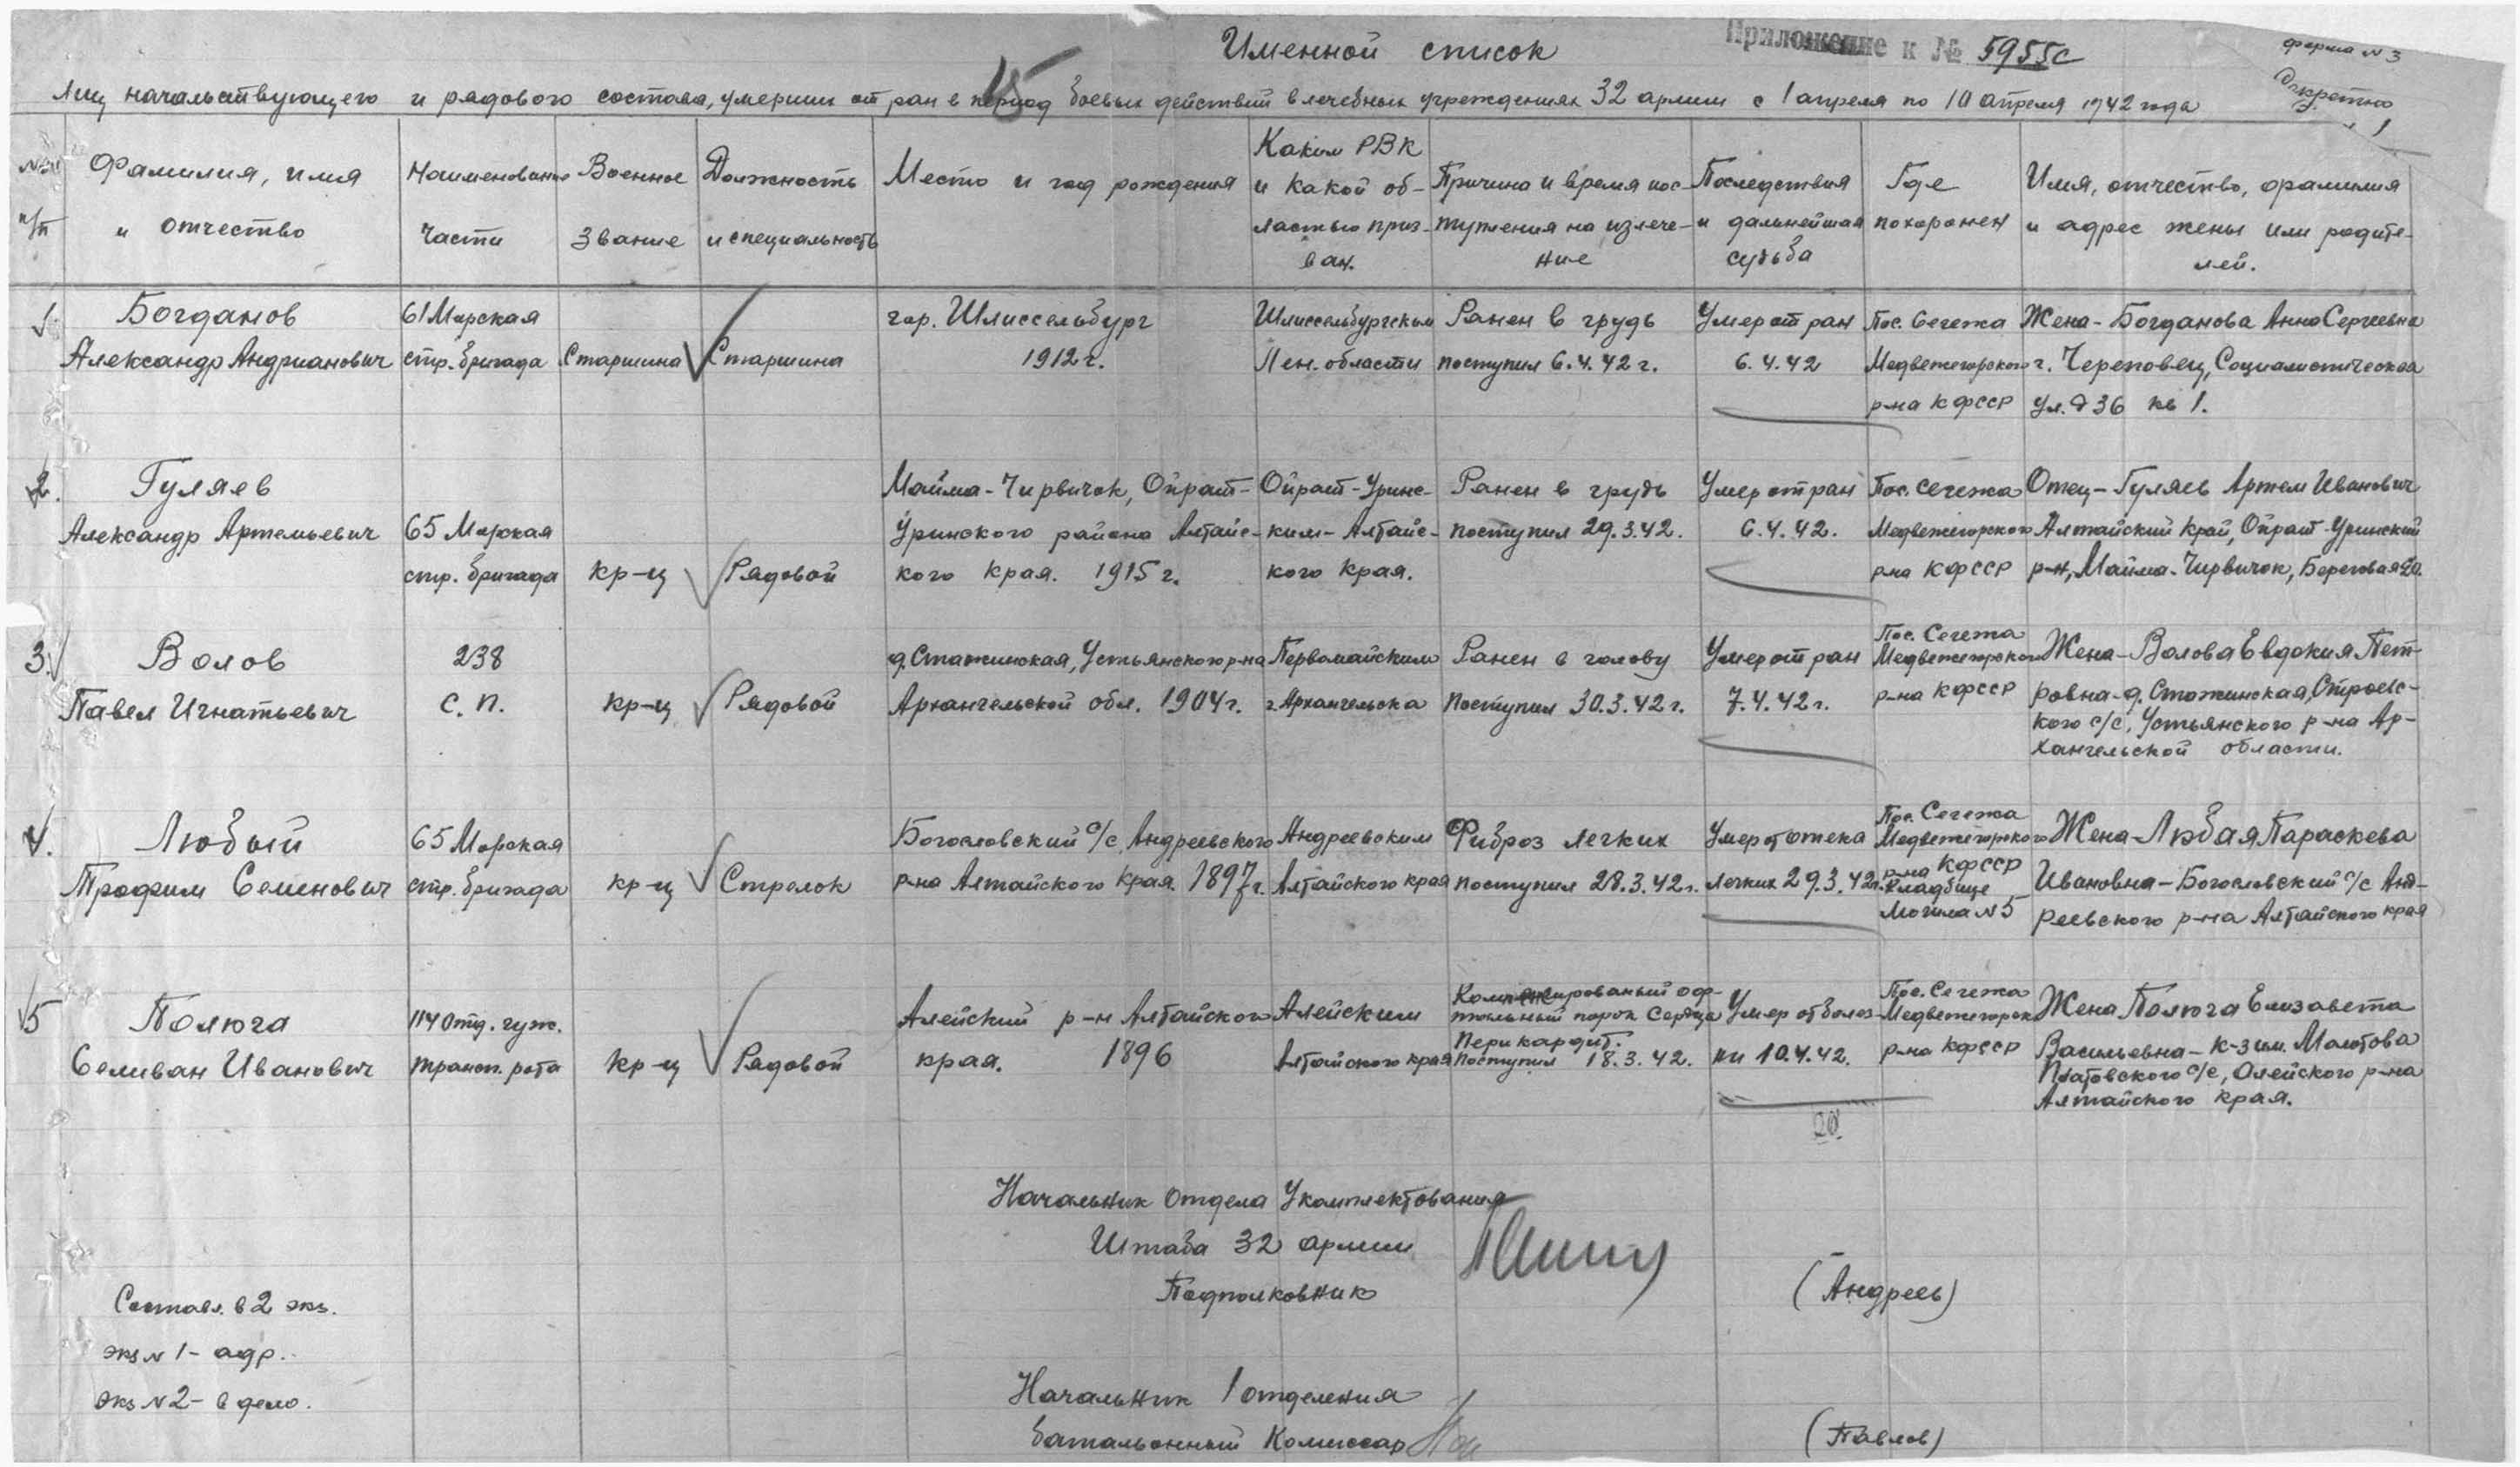 Именной список
Приложение к № 5955с
форма N 3
Секретно
15
лиц начальствующего и рядового состава, умерших от ран в период боевых действий в лечебных учреждениях 32 армии с 1 апреля по 10 апреля 1942 года
№№ п/п
Фамилия, имя
и отчество
Наименование
части
Военное
звание
Должность
и специальность
Место и год рождения
Каким РВК
и какой об-
ластью приз-
ван.
Причина и время пос-
тупления на излече-
ние
Последствия
и дальнейшая
судьба
Где
похоронен
Имя, отчество, фамилия
и адрес жены или родите-
лей.
1.
Богданов
Александр Андрианович
61 Морская
стр. бригада
Старшина
Старшина
гор. Шлиссельбург
1912 г.
Шлиссельбургским
Лен. области
Ранен в грудь
поступил 6.4.42 г.
Умер от ран
6.4.42
Пос. Сегежа
Медвежегорского
р-на КФССР
Жена - Богданова Анна Сергеевна
г. Череповец, Социалистическая
ул. д 36 кв 1.
2.
Гуляев
Александр Артемьевич
65 Морская
стр. бригада
кр-ц
Рядовой
Майма-Чирвичок, Ойрат-
Уринского района Алтайс-
кого края. 1915 г.
Ойрат-Уринс-
ким - Алтайс-
кого края.
Ранен в грудь
поступил 29.3.42.
Умер от ран
6.4.42.
Пос. Сегежа
Медвежегорского
р-на КФССР
Отец - Гуляев Артем Иванович
Алтайский край, Ойрат-Уринский
р-н, Майма-Чирвичок, Береговая 20.
3.
Волов
Павел Игнатьевич
238
с. п.
кр-ц
Рядовой
д. Стажинская, Устьянского р-на
Архангельской обл. 1904 г.
Первомайским
г. Архангельска
Ранен в голову
поступил 30.3.42 г.
Умер от ран
7.4.42 г.
Пос. Сегежа
Медвежегорского
р-на КФССР
Жена - Волова Евдокия Пет-
ровна - д. Стажинская, Строевс-
кого с/с, Устьянского р-на Ар-
хангельской области.
4.
Любый
Трофим Семенович
65 Морская
стр. бригада
кр-ц
Стрелок
Богословский с/с, Андреевского
р-на Алтайского края. 1897 г.
Андреевским
Алтайского края
Фиброз легких
поступил 28.3.42 г.
Умер от отека
легких 29.3.42 г.
Пос. Сегежа
Медвежегорского
р-на КФССР
Кладбище
Могила N 5
Жена - Любая Параскева
Ивановна - Богословский с/с Анд-
реевского р-на Алтайского края
5
Полюга
Селиван Иванович
114 отд. гуж.
трансп. рота
кр-ц
Рядовой
Алейский р-н Алтайского
края. 1896
Алейским
Алтайского края
порок сердца
Перикардит.
Поступил 18.3.42.
Умер от болез-
ни 10.4.42.
Пос. Сегежа
Медвежегорск
р-на КФССР
Жена Полюга Елизавета
Васильевна - к-з им. Молотова
Платовского с/с, Олейского р-на
Алтайского края.
20.
Начальник отдела укомплектования
Штаба 32 армии
Подполковник
(Андреев)
Составл. в 2 экз.
экз N 1 - адр.
экз N 2 - в дело.
Начальник 1 отделения
батальонный комиссар
(Павлов)